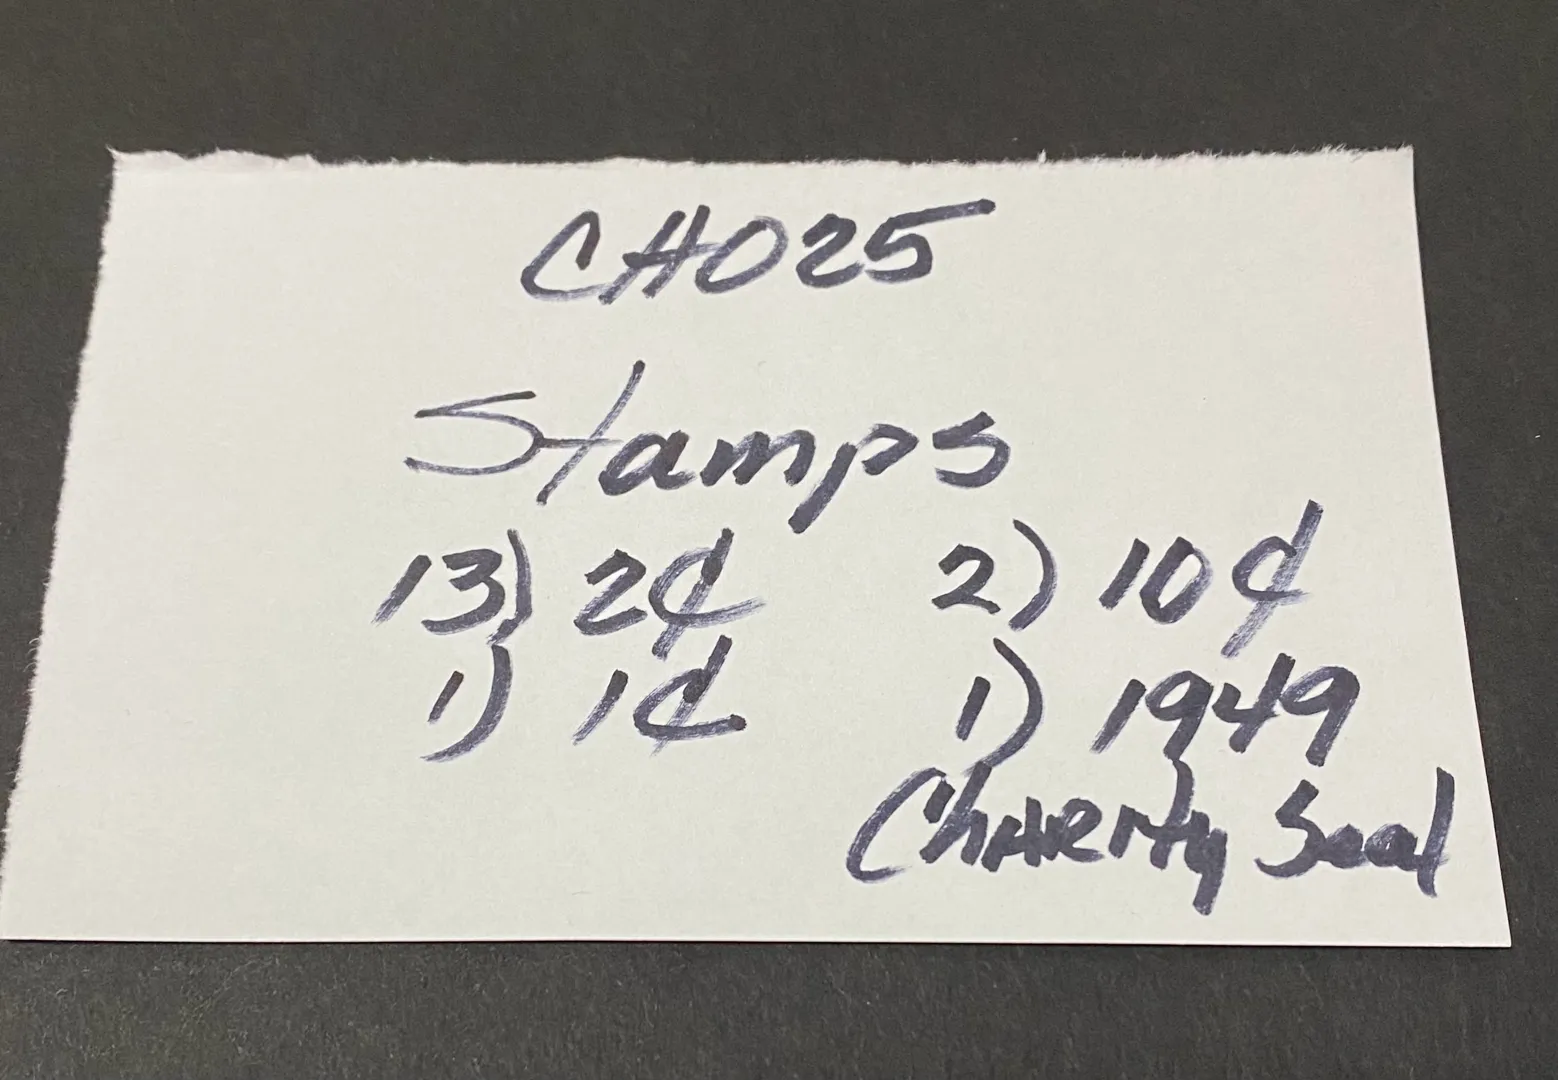 CH025
Stamps
13) 2¢ 2) 10¢
1) 1¢ 1) 1949
Charity Seal